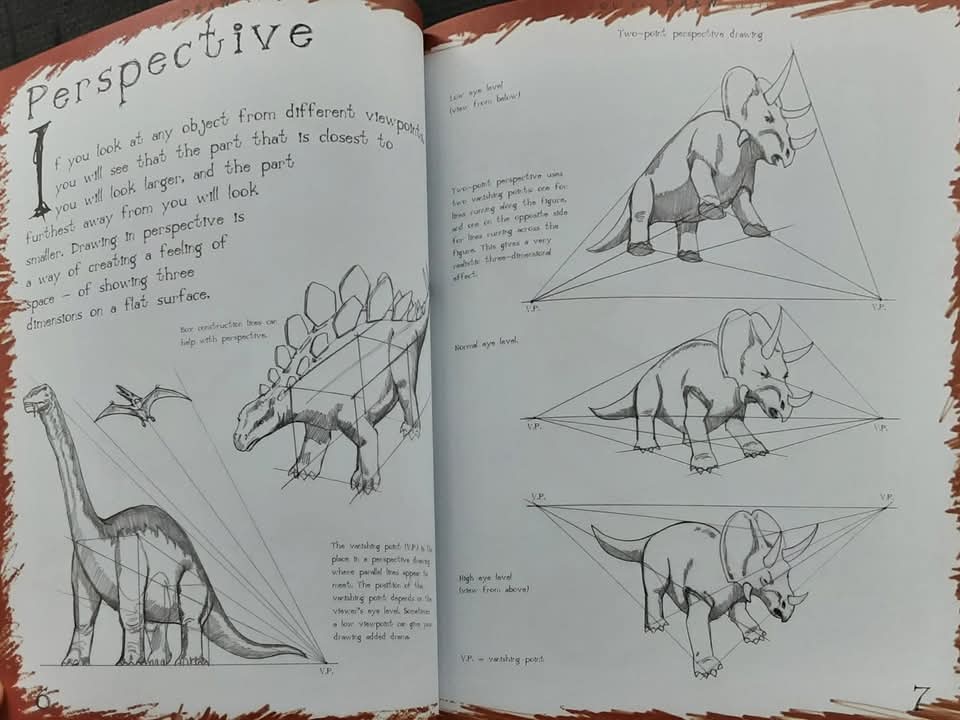 Perspective
If you look at any object from different viewpoints,
you will see that the part that is closest to
you will look larger, and the part
furthest away from you will look
smaller. Drawing in perspective is
a way of creating a feeling of
space – of showing three
dimensions on a flat surface.
Box construction lines can
help with perspective.
The vanishing point (V.P.) is the
place in a perspective drawing
where parallel lines appear to
meet. The position of the
vanishing point depends on the
viewer's eye level. Sometimes
a low viewpoint can give your
drawing added drama.
V.P.
6
Two-point perspective drawing
Low eye level
(view from below)
Two-point perspective uses
two vanishing points: one for
lines running along the figure,
and one on the opposite side
for lines running across the
figure. This gives a very
realistic three-dimensional
effect.
V.P.
V.P.
Normal eye level.
V.P.
V.P.
V.P.
V.P.
High eye level
(view from above)
V.P. = vanishing point
7